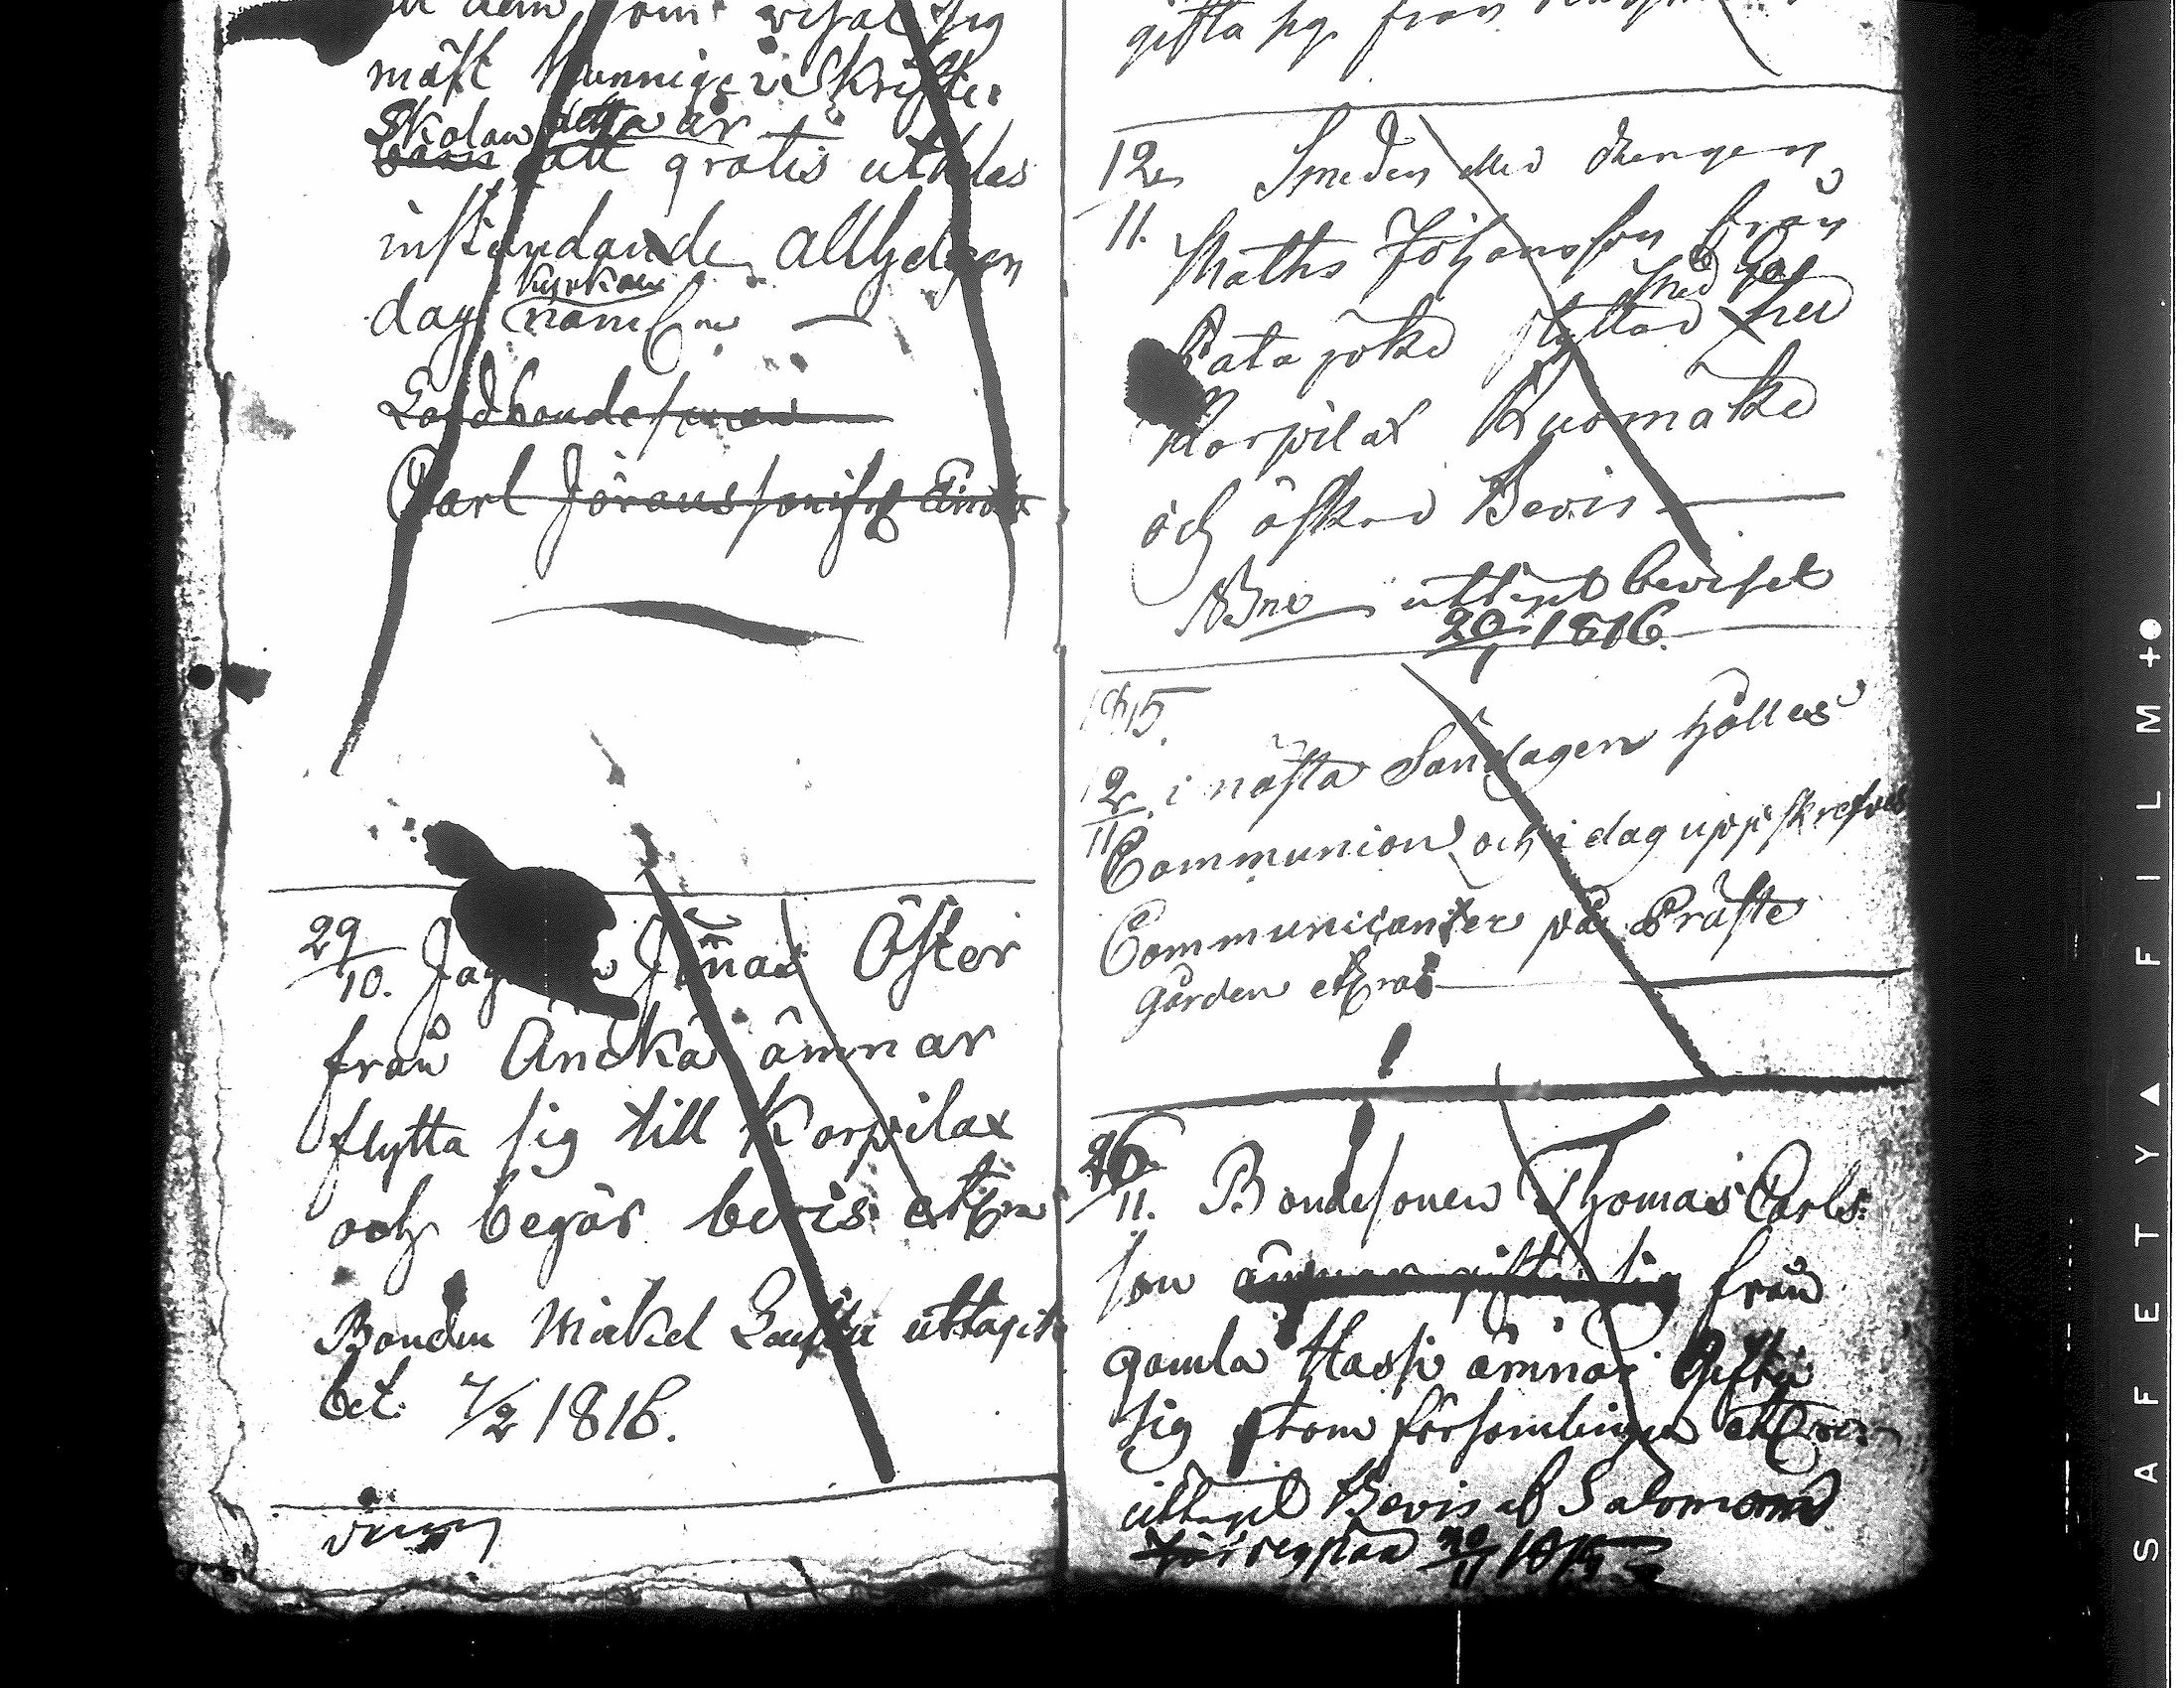 dem som visat sig
mäst kunnige i Skriften
Skolan detta år
barn att gratis utdelas
instundande Allhelgon
dag kyrkan
Landbondesonen
Carl Jöransson
29/10. Jag Jonas Öster
från Ancka ämnar
flytta sig till Korpilax
och begär bevis etc
Bonden Mickel uttagit
bet. 7/2 1816.
gifta sig från
12/11. Smeden eller drengen
Maths Johansson från
med har
flyttad
Korpilax Kuomake
och äskad Bevis
uttagit beviset
20/1 1816.
1815.
12/11. i nästa Söndagen hålles
Communion och i dag uppskrefves
Communicanter på Präste
gården
26/11. Bondesonen Thomas Carls
son ämnar gifta sig från
gamla Hassi ämnar Gifta
sig inom församlingen
uttagit Bevis af Salomon